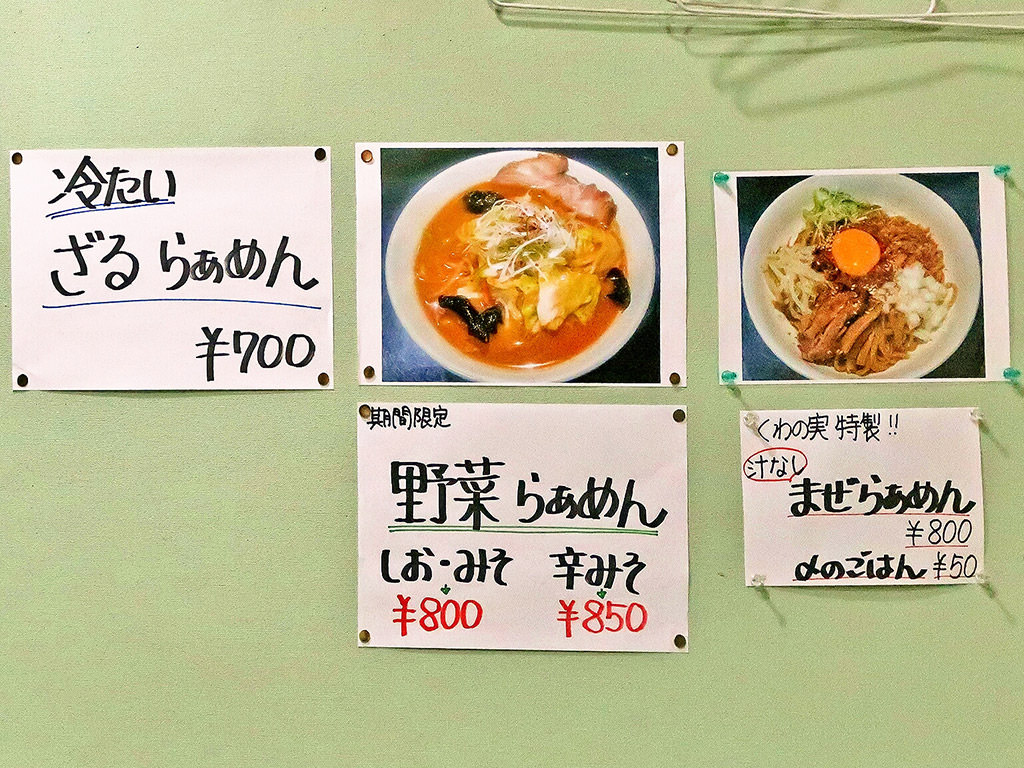 冷たい
ざるらぁめん
¥700
期間限定
野菜らぁめん
しお・みそ 辛みそ
¥800 ¥850
くわの実 特製!!
汁なし
まぜらぁめん
¥800
〆のごはん ¥50